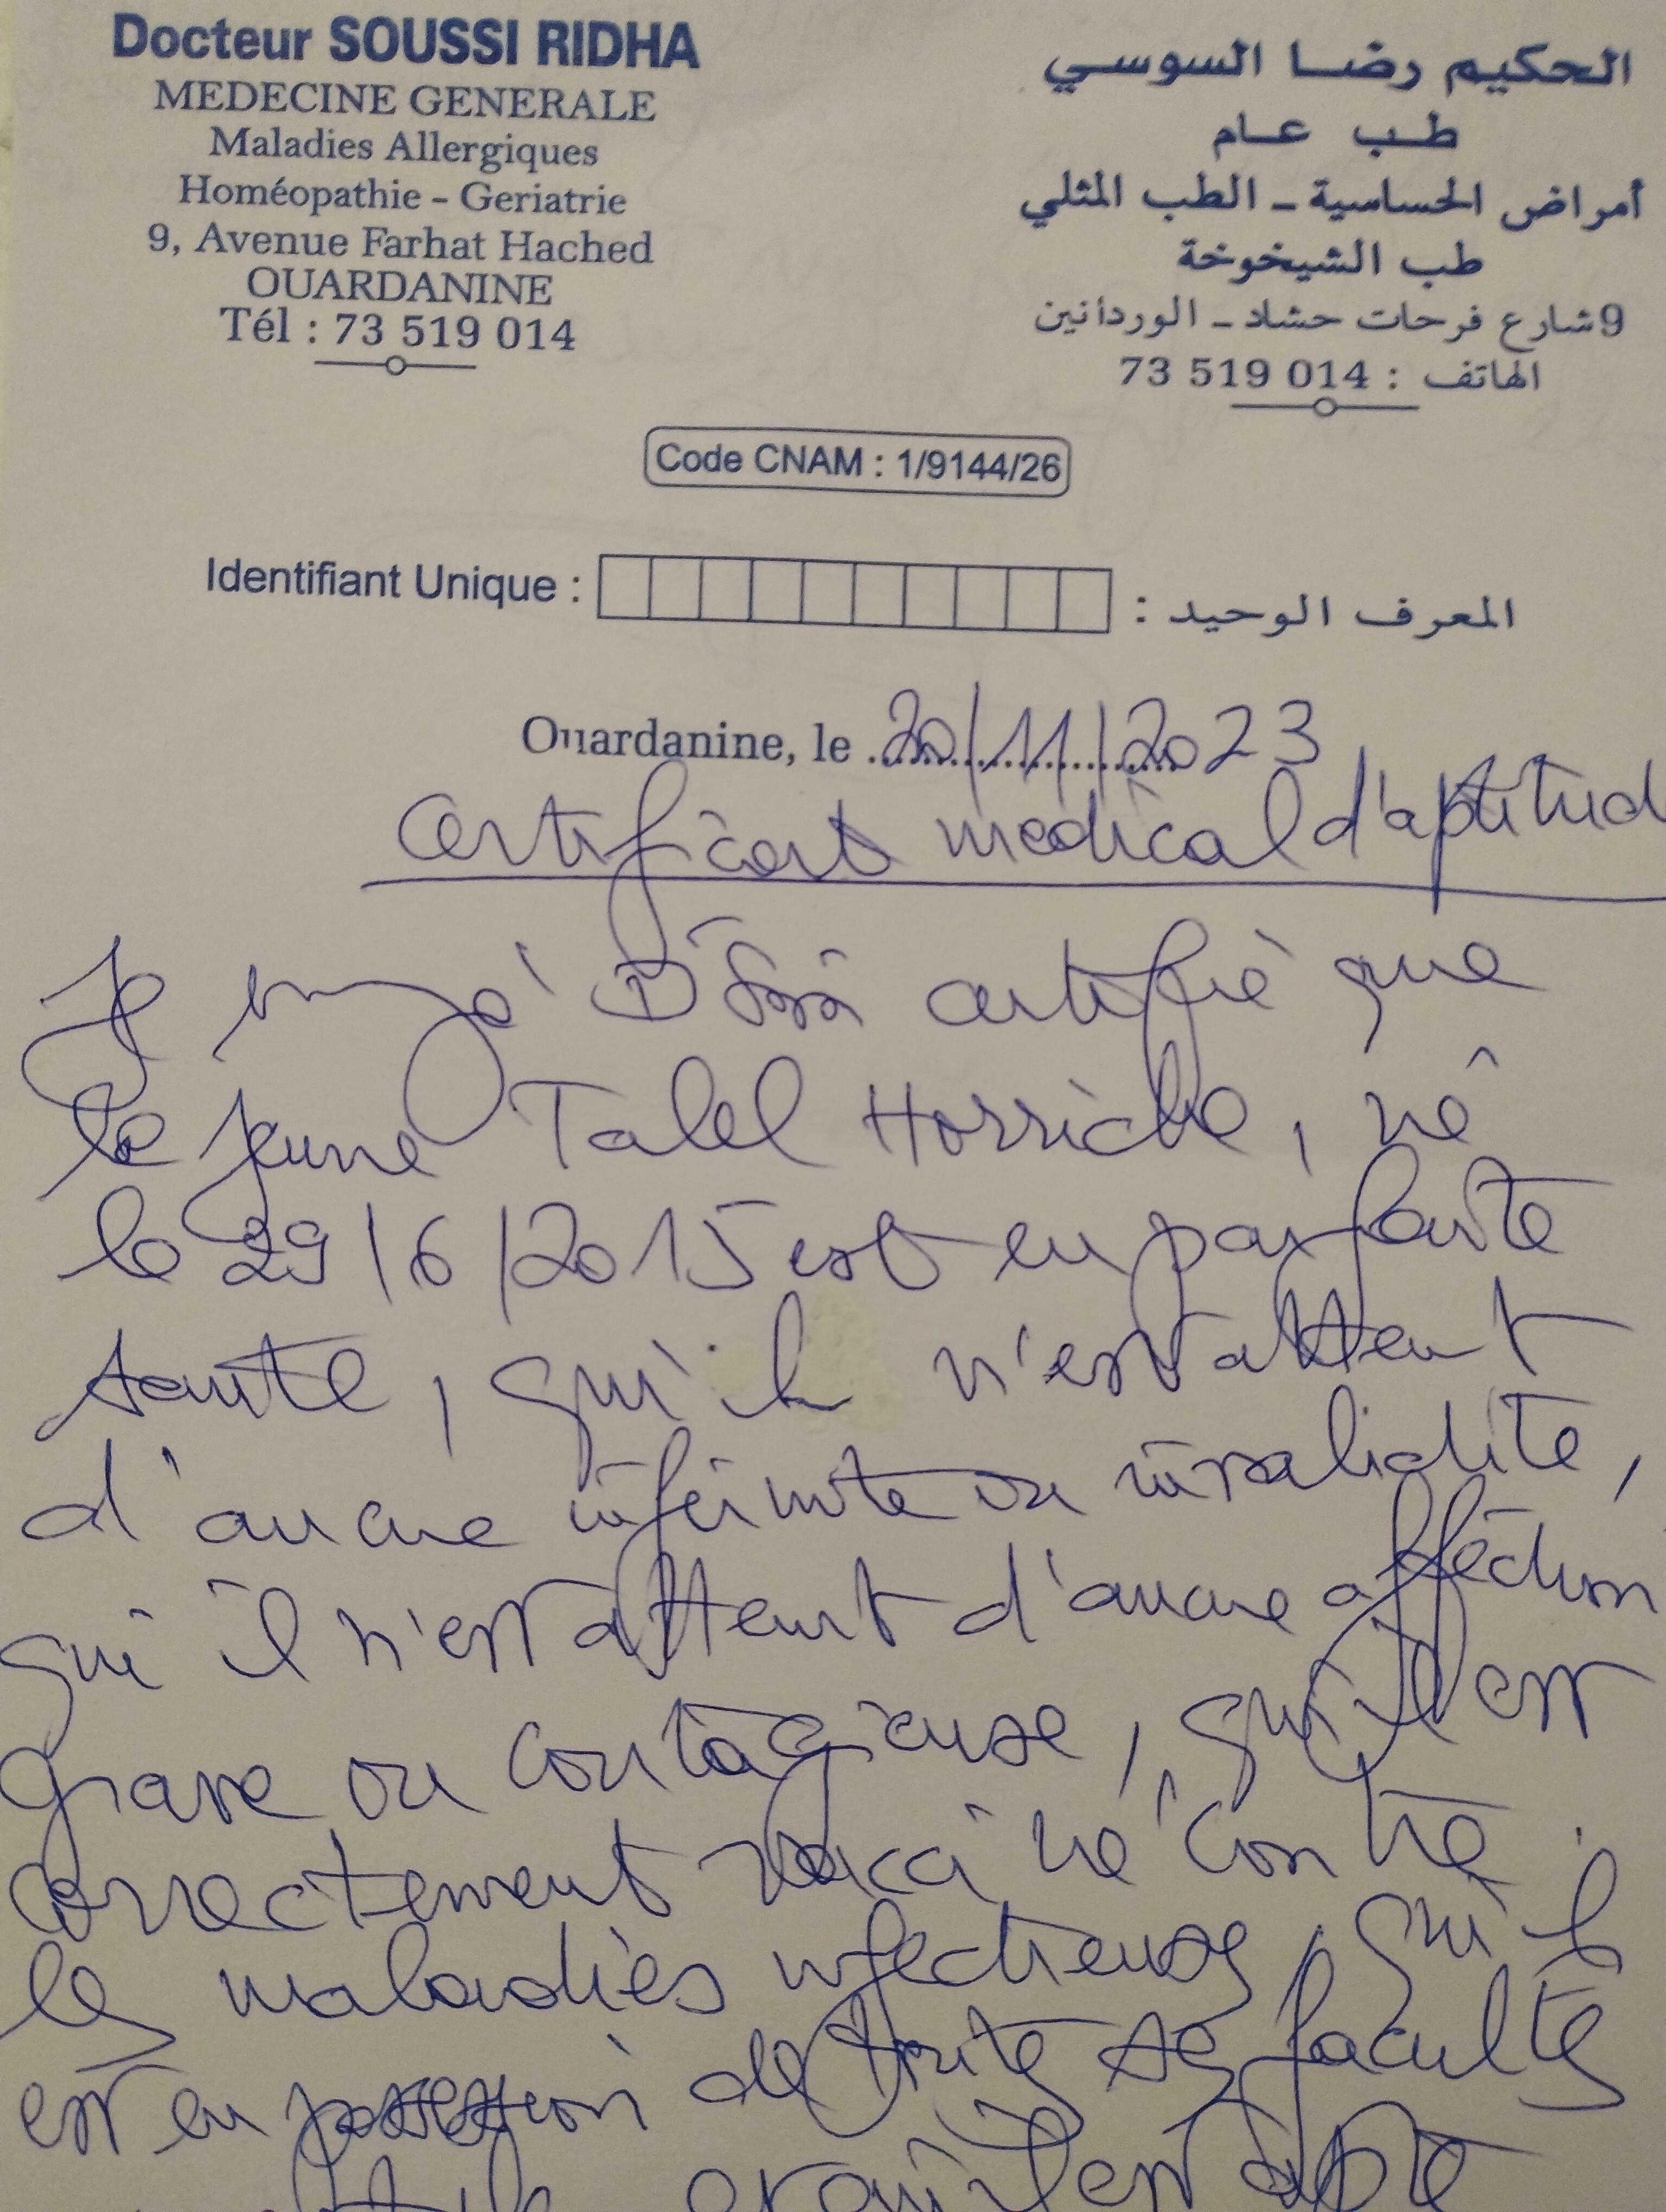 Docteur SOUSSI RIDHA
MEDECINE GENERALE
Maladies Allergiques
Homéopathie - Geriatrie
9, Avenue Farhat Hached
OUARDANINE
Tél : 73 519 014
الحكيم رضا السوسي
طب عام
أمراض الحساسية - الطب المثلي
طب الشيخوخة
9 شارع فرحات حشاد - الوردانين
الهاتف : 73 519 014
Code CNAM : 1/9144/26
Identifiant Unique : المعرف الوحيد :
Ouardanine, le 20/11/2023
Certificat médical d'aptitud
Je certifie que
le jeune Talel Horriche, né
le 29/6/2015 est en parfaite
santé, qu'il n'est atteint
d'aucune infirmité ou invalidité,
qu'il n'est atteint d'aucune affection
grave ou contagieuse, qu'il est
correctement vacciné contre
les maladies infectieuses, qu'il
est en possession de toutes ses facultés
et qu'il est apte